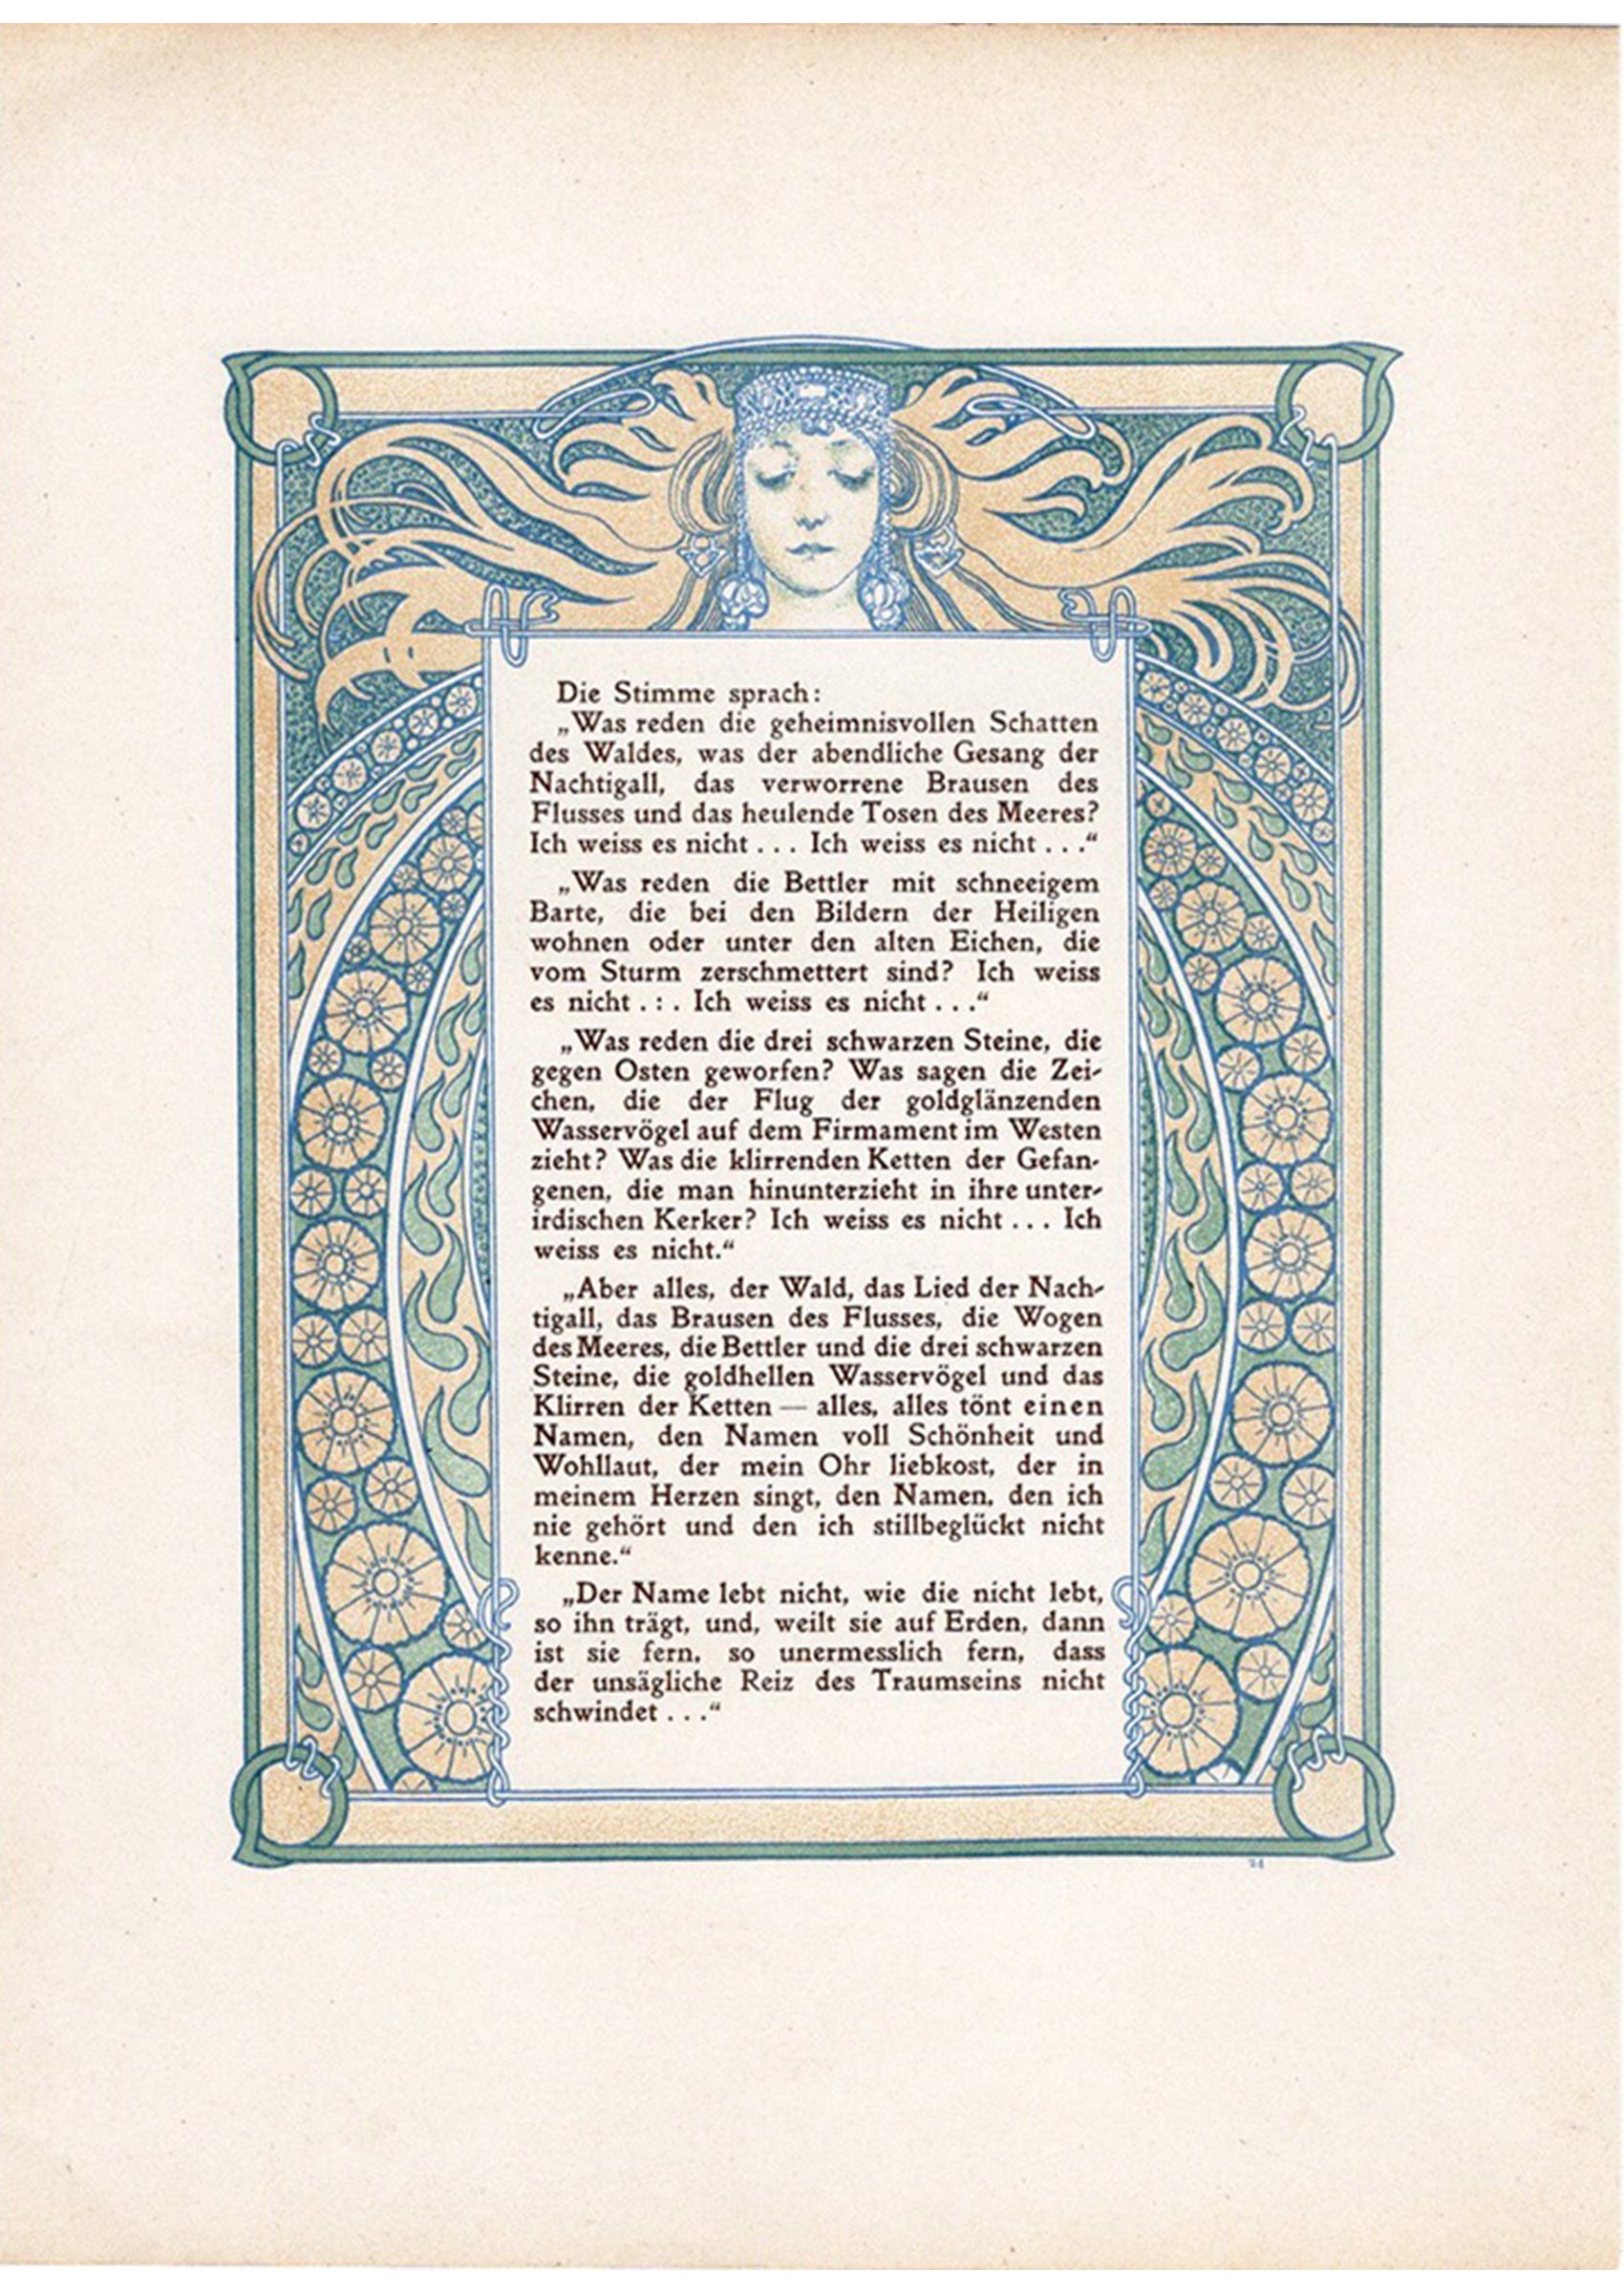 Die Stimme sprach:
„Was reden die geheimnisvollen Schatten
des Waldes, was der abendliche Gesang der
Nachtigall, das verworrene Brausen des
Flusses und das heulende Tosen des Meeres?
Ich weiss es nicht . . . Ich weiss es nicht . . .“
„Was reden die Bettler mit schneeigem
Barte, die bei den Bildern der Heiligen
wohnen oder unter den alten Eichen, die
vom Sturm zerschmettert sind? Ich weiss
es nicht . : . Ich weiss es nicht . . .“
„Was reden die drei schwarzen Steine, die
gegen Osten geworfen? Was sagen die Zei-
chen, die der Flug der goldglänzenden
Wasservögel auf dem Firmament im Westen
zieht? Was die klirrenden Ketten der Gefan-
genen, die man hinunterzieht in ihre unter-
irdischen Kerker? Ich weiss es nicht . . . Ich
weiss es nicht.“
„Aber alles, der Wald, das Lied der Nach-
tigall, das Brausen des Flusses, die Wogen
des Meeres, die Bettler und die drei schwarzen
Steine, die goldhellen Wasservögel und das
Klirren der Ketten — alles, alles tönt einen
Namen, den Namen voll Schönheit und
Wohllaut, der mein Ohr liebkost, der in
meinem Herzen singt, den Namen, den ich
nie gehört und den ich stillbeglückt nicht
kenne.“
„Der Name lebt nicht, wie die nicht lebt,
so ihn trägt, und, weilt sie auf Erden, dann
ist sie fern, so unermesslich fern, dass
der unsägliche Reiz des Traumseins nicht
schwindet . . .“